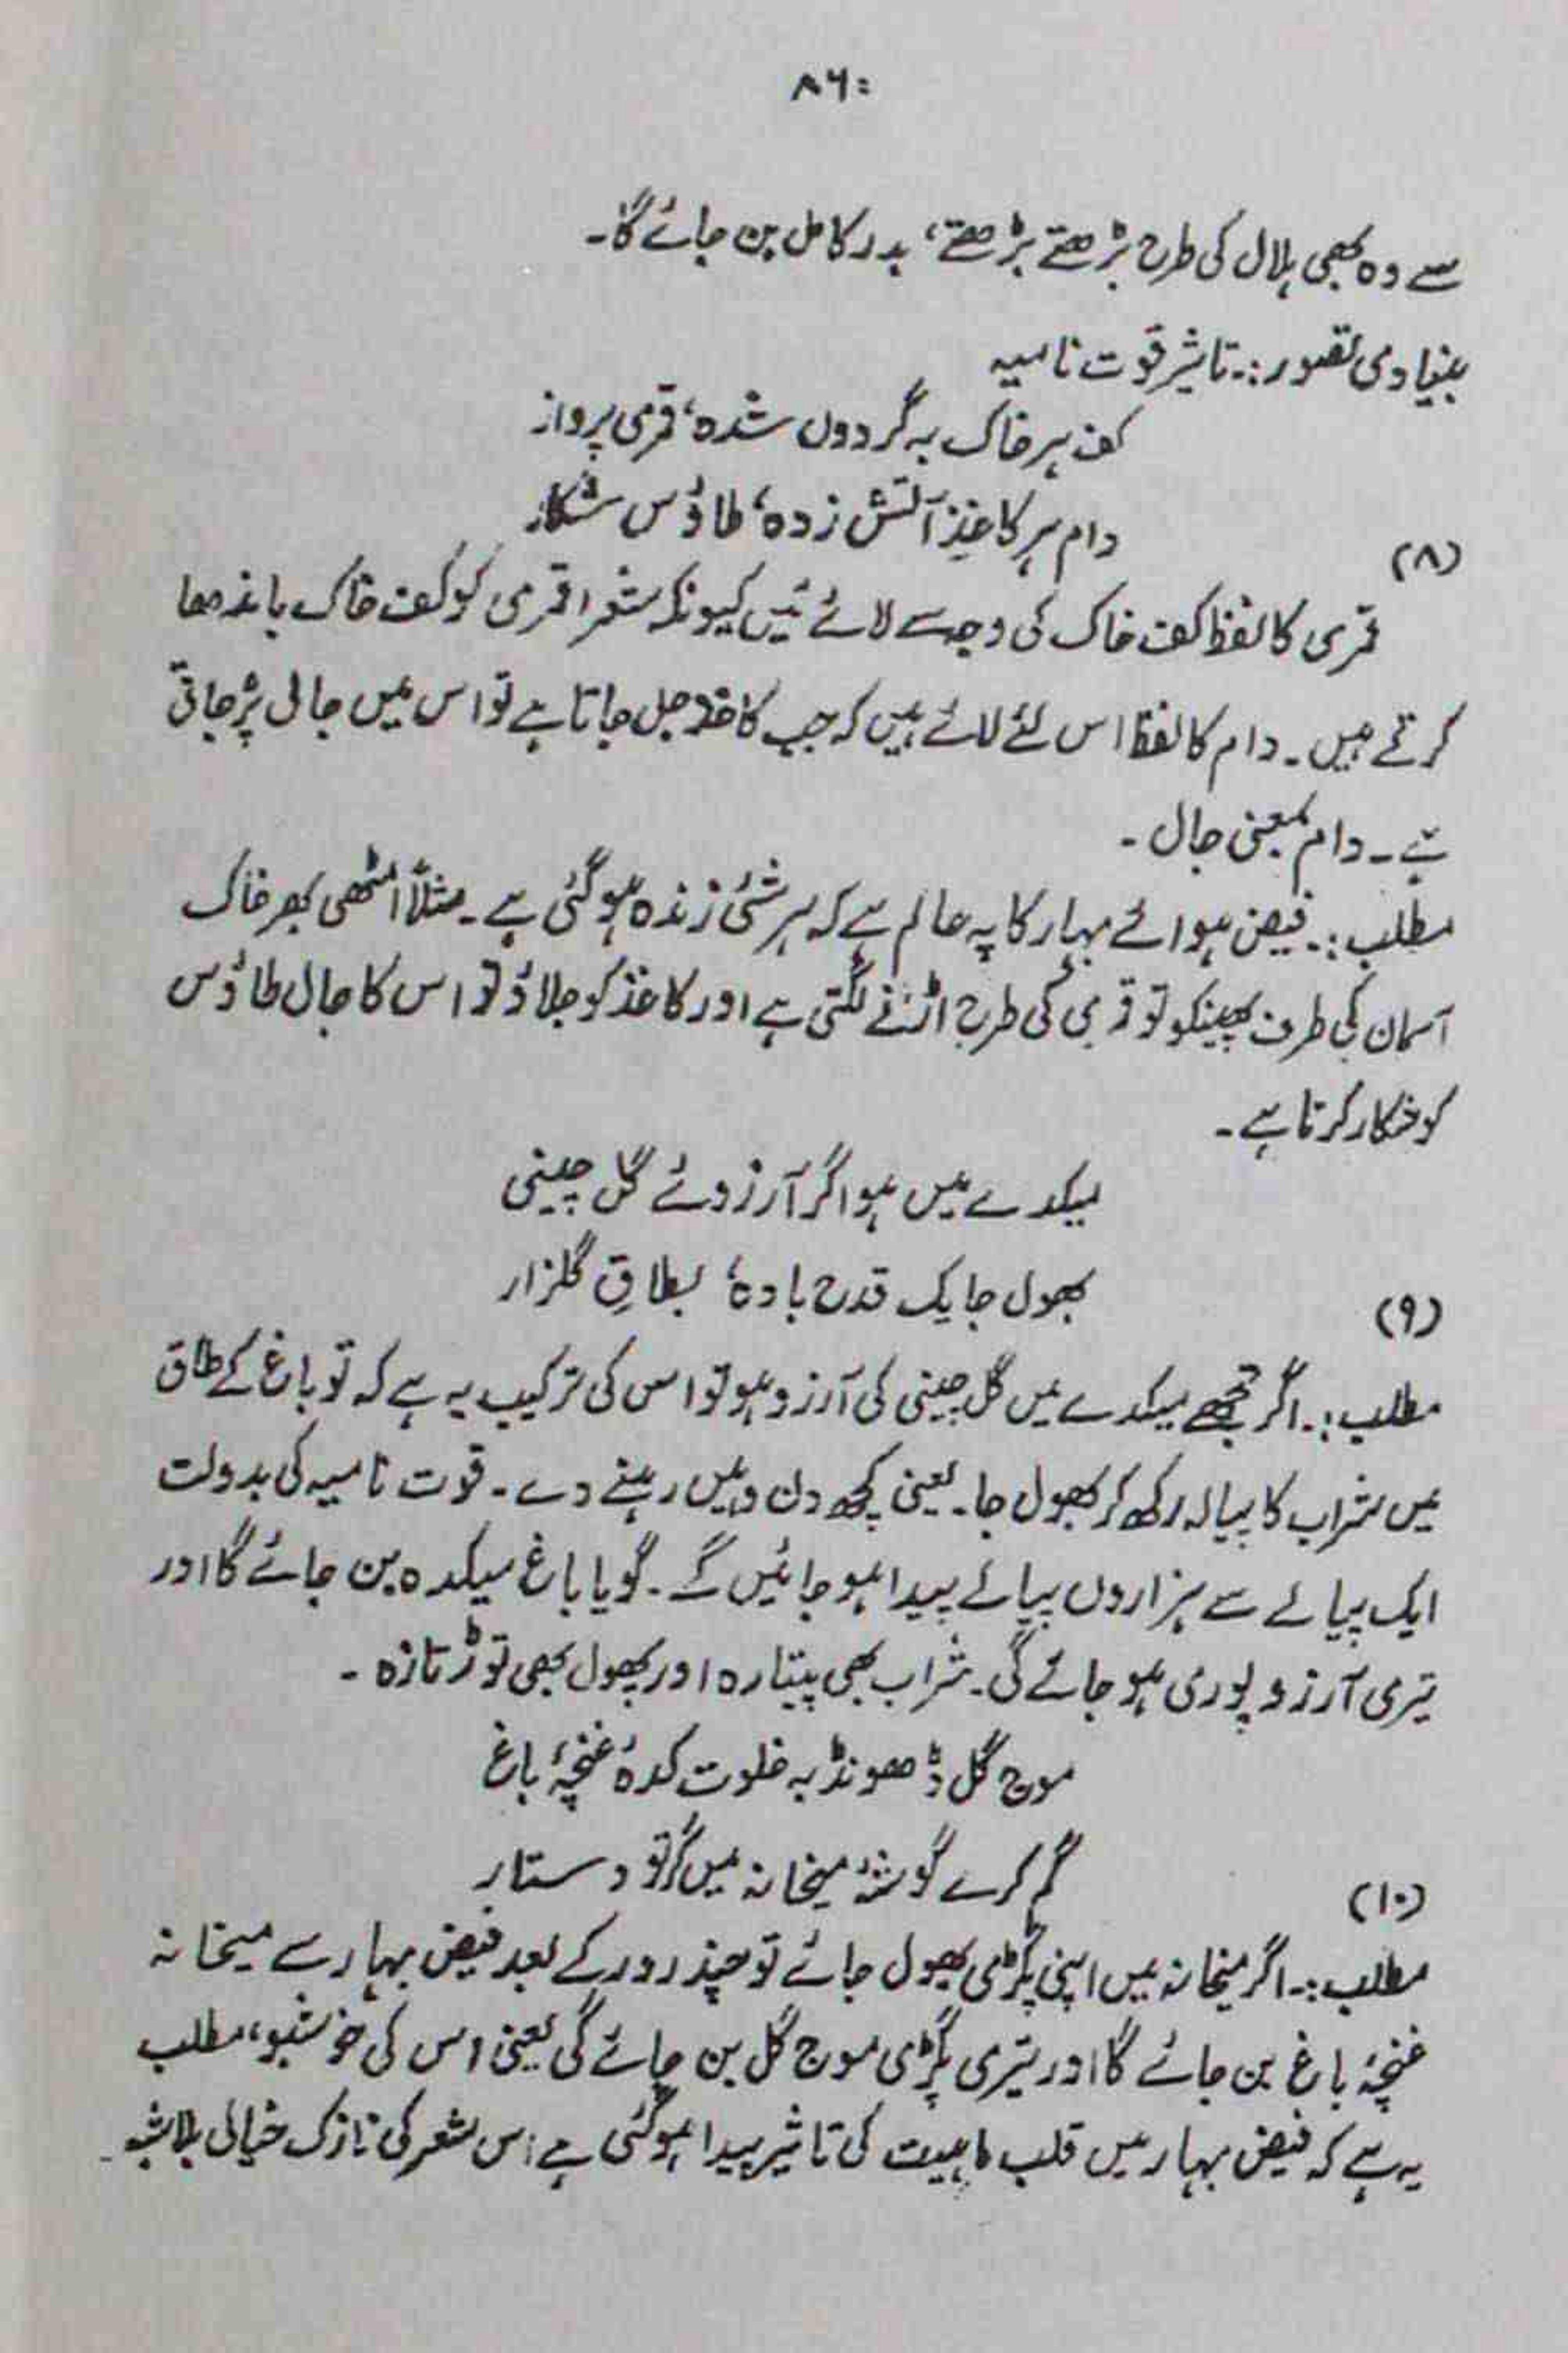 ۸۶۰
سے وہ بھی ہلال کی طرح بڑھتے بڑھتے، بدر کامل بن جائے گا۔
بنیادی تصور:۔ تاثیر قوت نامیہ
کف ہر خاک بہ گردوں شدہ، قمری پرواز
دام ہر کاغذِ آتش زدہ، طاؤس شکار
(۸)
قمری کا لفظ کف خاک کی وجہ سے لائے ہیں کیونکہ شعرا قمری کو کف خاک باندھا
کرتے ہیں۔ دام کا لفظ اس لئے لائے ہیں کہ جب کاغذ جل جاتا ہے تو اس میں جالی پڑ جاتی
ہے۔ دام بمعنی جال۔
مطلب:۔ فیض ہوائے بہار کا یہ عالم ہے کہ ہر شئی زندہ ہو گئی ہے۔ مثلاً مٹھی بھر خاک
آسمان کی طرف پھینکو تو قمری کی طرح اڑنے لگتی ہے اور کاغذ کو جلاؤ تو اس کا جال طاؤس
کو شکار کرتا ہے۔
میکدے میں ہو اگر آرزوئے گل چینی
بھول جا یک قدح بادہ، بطاقِ گلزار
(۹)
مطلب:۔ اگر تجھے میکدے میں گل چینی کی آرزو ہو تو اس کی ترکیب یہ ہے کہ تو باغ کے طاق
میں شراب کا پیالہ رکھ کر بھول جا۔ یعنی کچھ دن وہیں رہنے دے۔ قوت نامیہ کی بدولت
ایک پیالے سے ہزاروں پیالے پیدا ہو جائیں گے۔ گویا باغ میکدہ بن جائے گا اور
تیری آرزو پوری ہو جائے گی۔ شراب بھی پیتا رہ اور پھول بھی توڑتا رہ۔
موج گل ڈھونڈ بہ خلوت کدۂ غنچۂ باغ
گم کرے گوشۂ میخانہ میں گر تو دستار
(۱۰)
مطلب:۔ اگر میخانہ میں اپنی پگڑی بھول جائے تو چند روز کے بعد فیض بہار سے میخانہ
غنچۂ باغ بن جائے گا اور تیری پگڑی موج گل بن جائے گی یعنی اس کی خوشبو، مطلب
یہ ہے کہ فیض بہار میں قلب ماہیت کی تاثیر پیدا ہو گئی ہے اس شعر کی نازک خیالی بلاشبہ